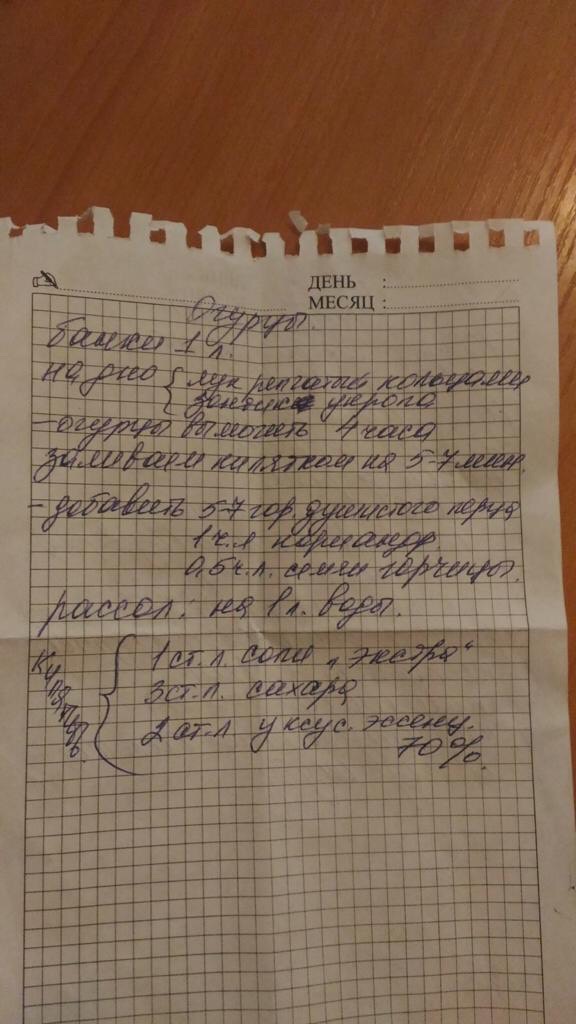 ДЕНЬ :
МЕСЯЦ :
Огурцы.
банки 1 л.
на дно { лук репчатый кольцами
зонтик укропа
- огурцы вымочить 4 часа
заливаем кипятком на 5-7 мин.
- добавить 5-7 гор. душистого перца
1 ч.л кориандр
0,5 ч.л. семян горчицы.
рассол: на 1 л. воды.
Кипятить. { 1 ст.л. соли "экстра"
3 ст.л. сахара
2 ст.л уксус. эссенц.
70%.